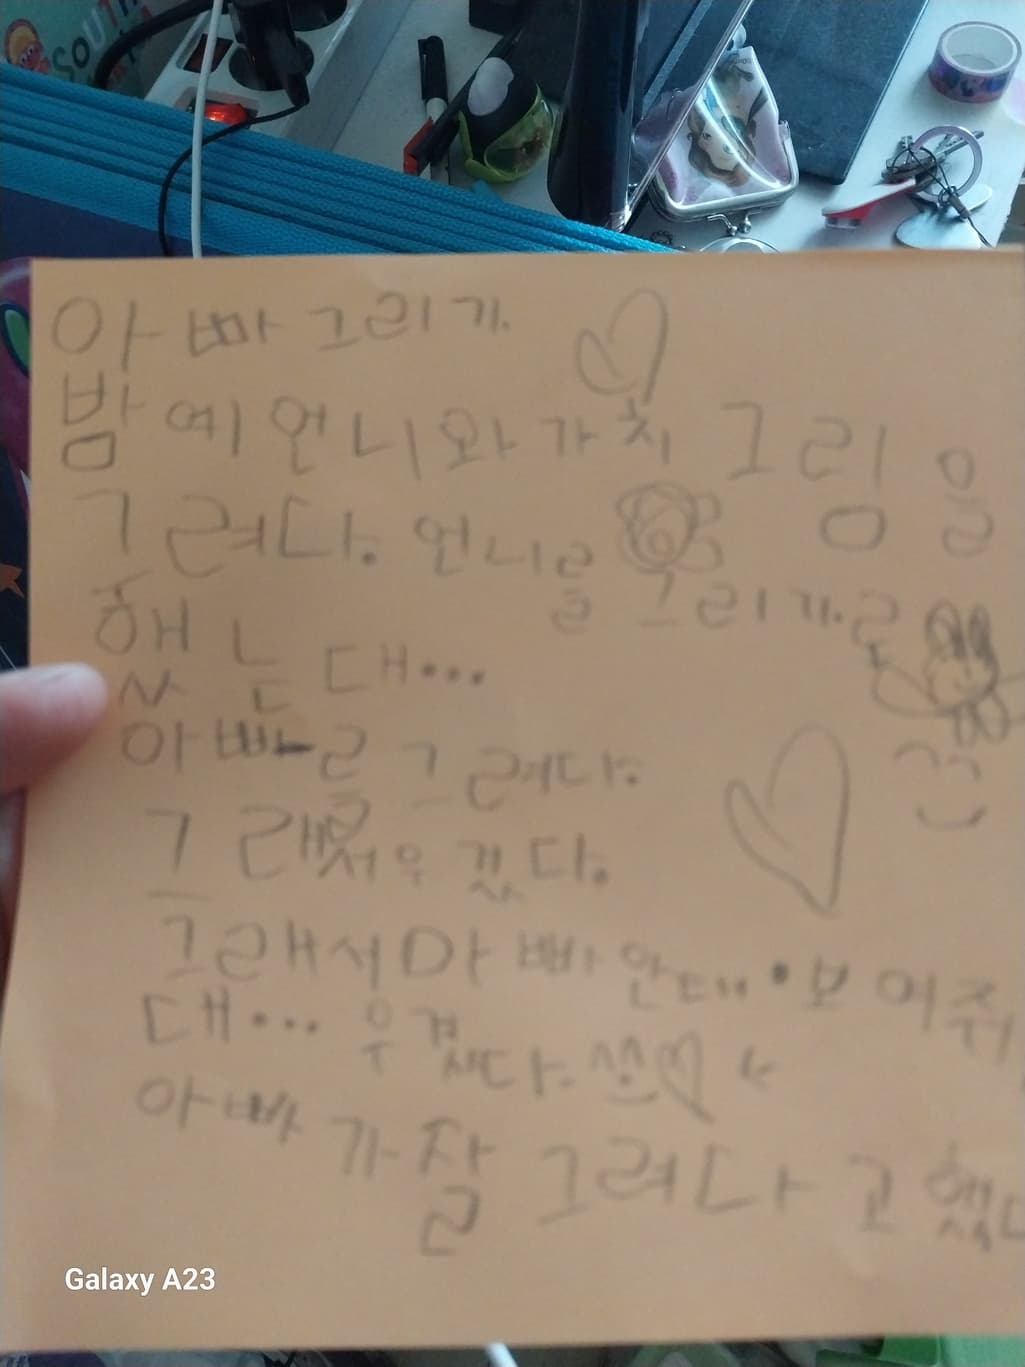 SOUTH
아빠 그리기.
밤에 언니와 가치 그림을
그려다. 언니를 그리기로
했는대...
아빠를 그려다.
그래서 우겼다.
그래서 아빠 보여줘
대... 우겼다.
아빠가 잘 그려다고 했다
Galaxy A23